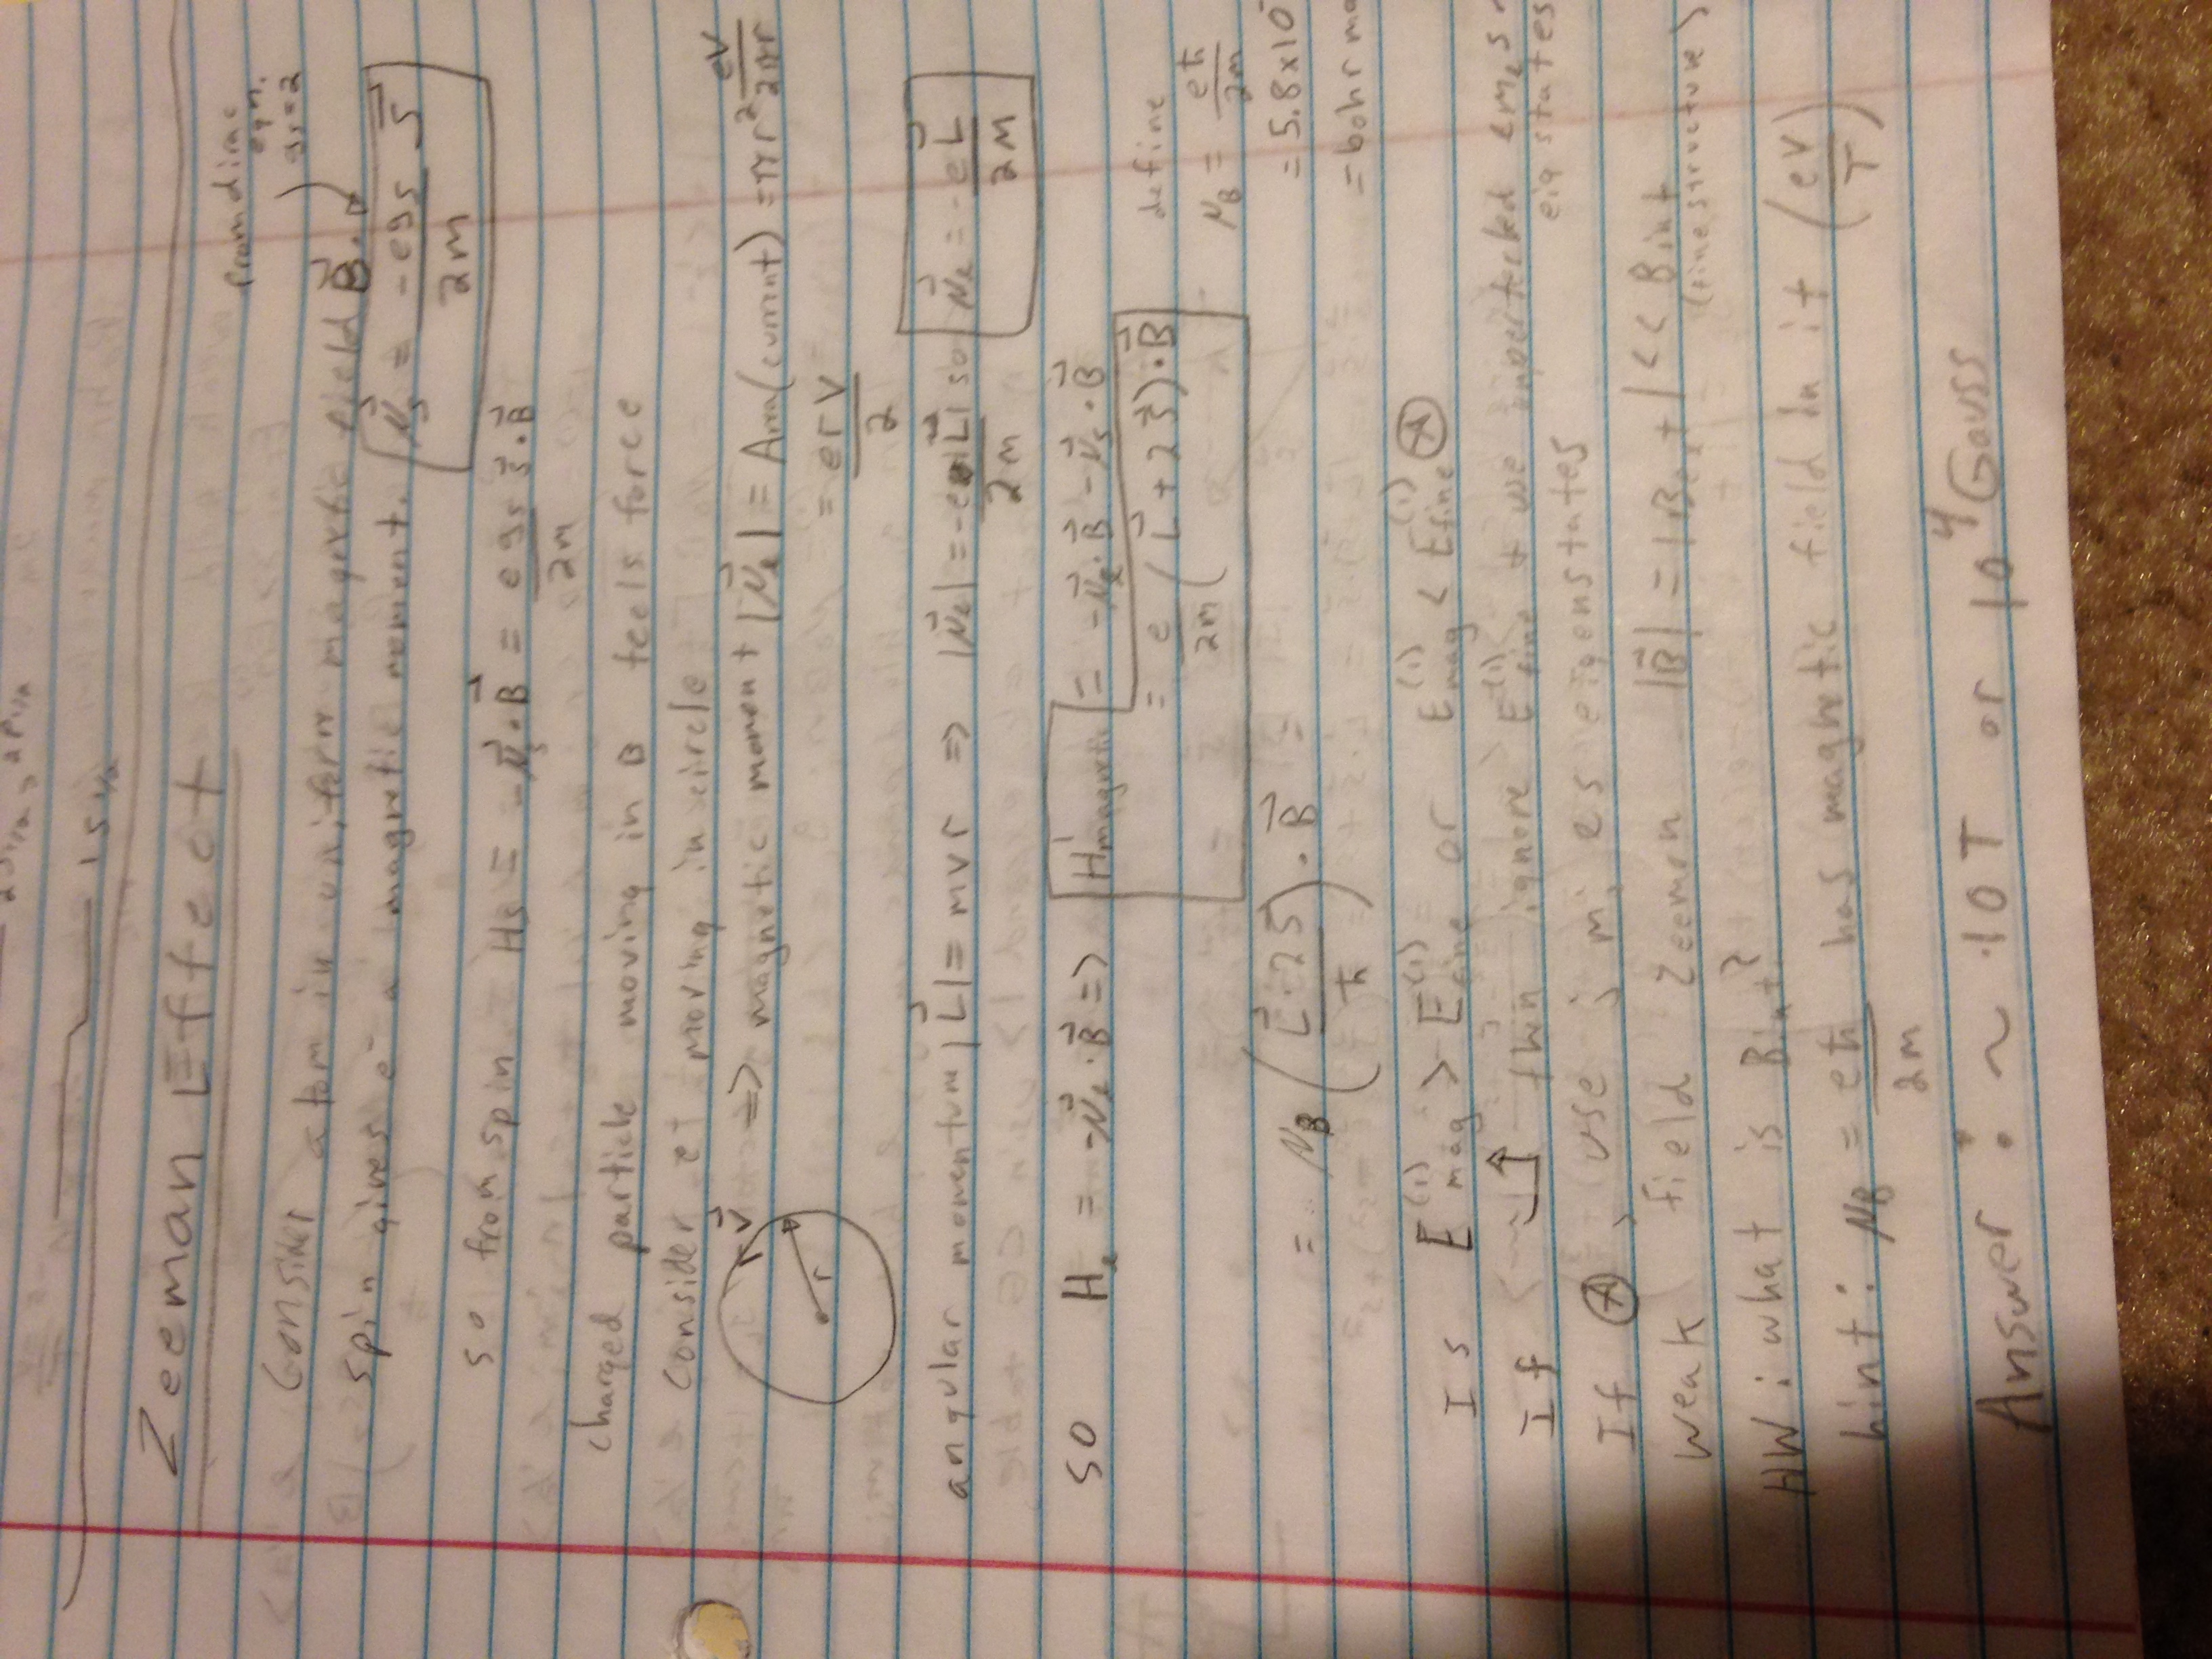 2S1/2, 2P1/2
1S 1/2
Zeeman Effect
from dirac
eqn.
gs=2
Consider atom in uniform magnetic field B⃗.
spin gives e⁻ a magnetic moment. μ⃗s = -egs/2m S⃗
so from spin Hs = -μ⃗s·B⃗ = egs/2m S⃗·B⃗
charged particle moving in B feels force
Consider e+ moving in circle
v⃗ r ⇒ magnetic moment |μ⃗ℓ| = Area(current) = πr² eV/2πr
= erV/2
angular momentum |L⃗| = mvr ⇒ |μ⃗ℓ| = -e|L⃗|/2m so μ⃗ℓ = -eL⃗/2m
so Hℓ = -μ⃗ℓ·B⃗ => H'magnetic = -μ⃗ℓ·B⃗ - μ⃗s·B⃗
= e/2m (L⃗ + 2S⃗)·B⃗
define
μB = eħ/2m
= 5.8x10⁻
= bohr ma
= μB (L⃗·2S⃗/ħ)·B⃗ =
Is E⁽¹⁾mag > E⁽¹⁾fine or E⁽¹⁾mag < E⁽¹⁾fine Ⓐ
If then ignore E⁽¹⁾fine + use ℓmℓs
eigstates
If Ⓐ, use j mj ℓs eigenstates
weak field Zeeman |B⃗| = |Bext| << Bint
(fine structure)
HW: what is Bint?
hint: μB = eħ/2m has magnetic field in it (eV/T)
Answer: ~ 10T or 10⁴ Gauss